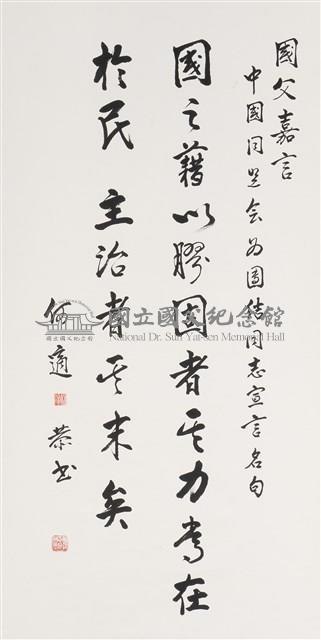 國父嘉言
中國同盟会為團結同志宣言名句
國之藉以膠固者其力常在
於民 主治者其末矣
何適 恭书
國立國父紀念館
National Dr. Sun Yat-sen Memorial Hall